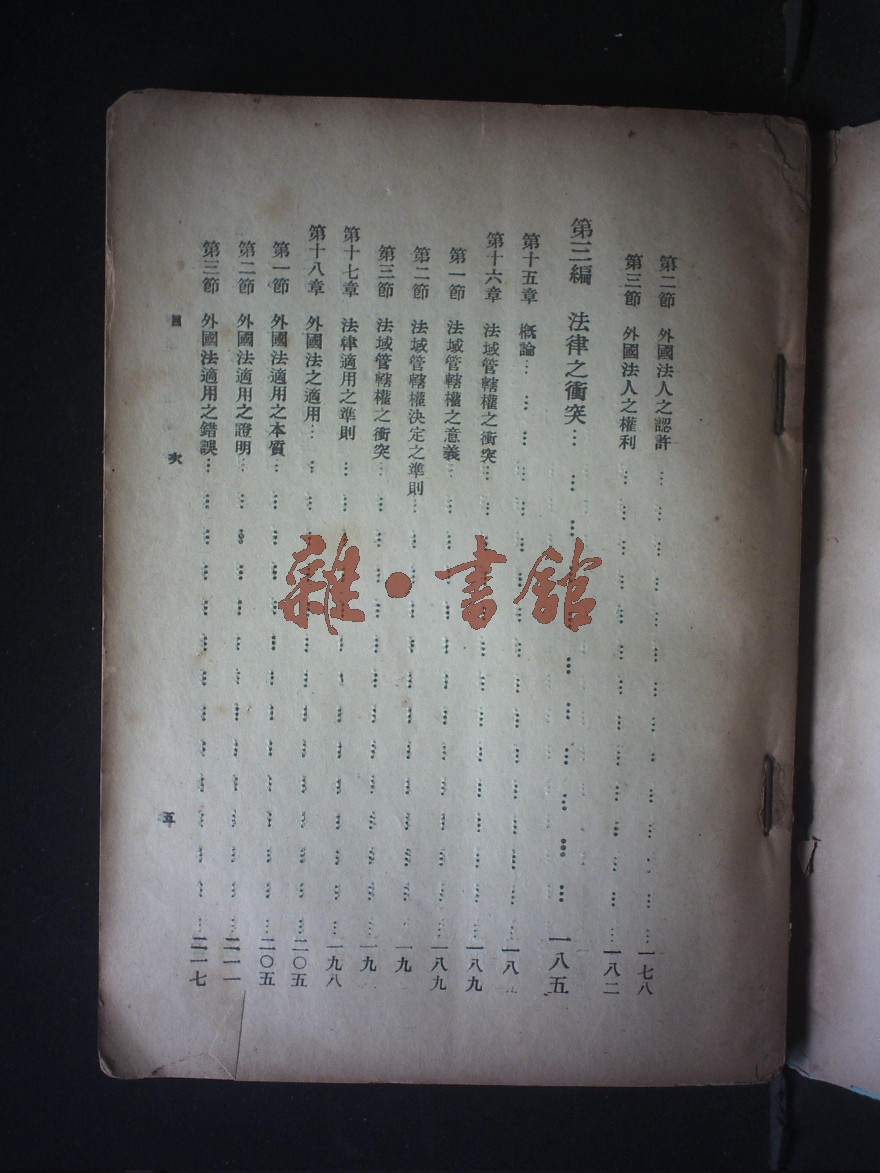 第二節 外國法人之認許………一七八
第三節 外國法人之權利………一八二
第三編 法律之衝突………一八五
第十五章 概論………一八
第十六章 法域管轄權之衝突………一八九
第一節 法域管轄權之意義………一八九
第二節 法域管轄權決定之準則………一九
第三節 法域管轄權之衝突………一九
第十七章 法律適用之準則………一九八
第十八章 外國法之適用………二〇五
第一節 外國法適用之本質………二〇五
第二節 外國法適用之證明………二一一
第三節 外國法適用之錯誤………二一七
目次
五
雜·書館